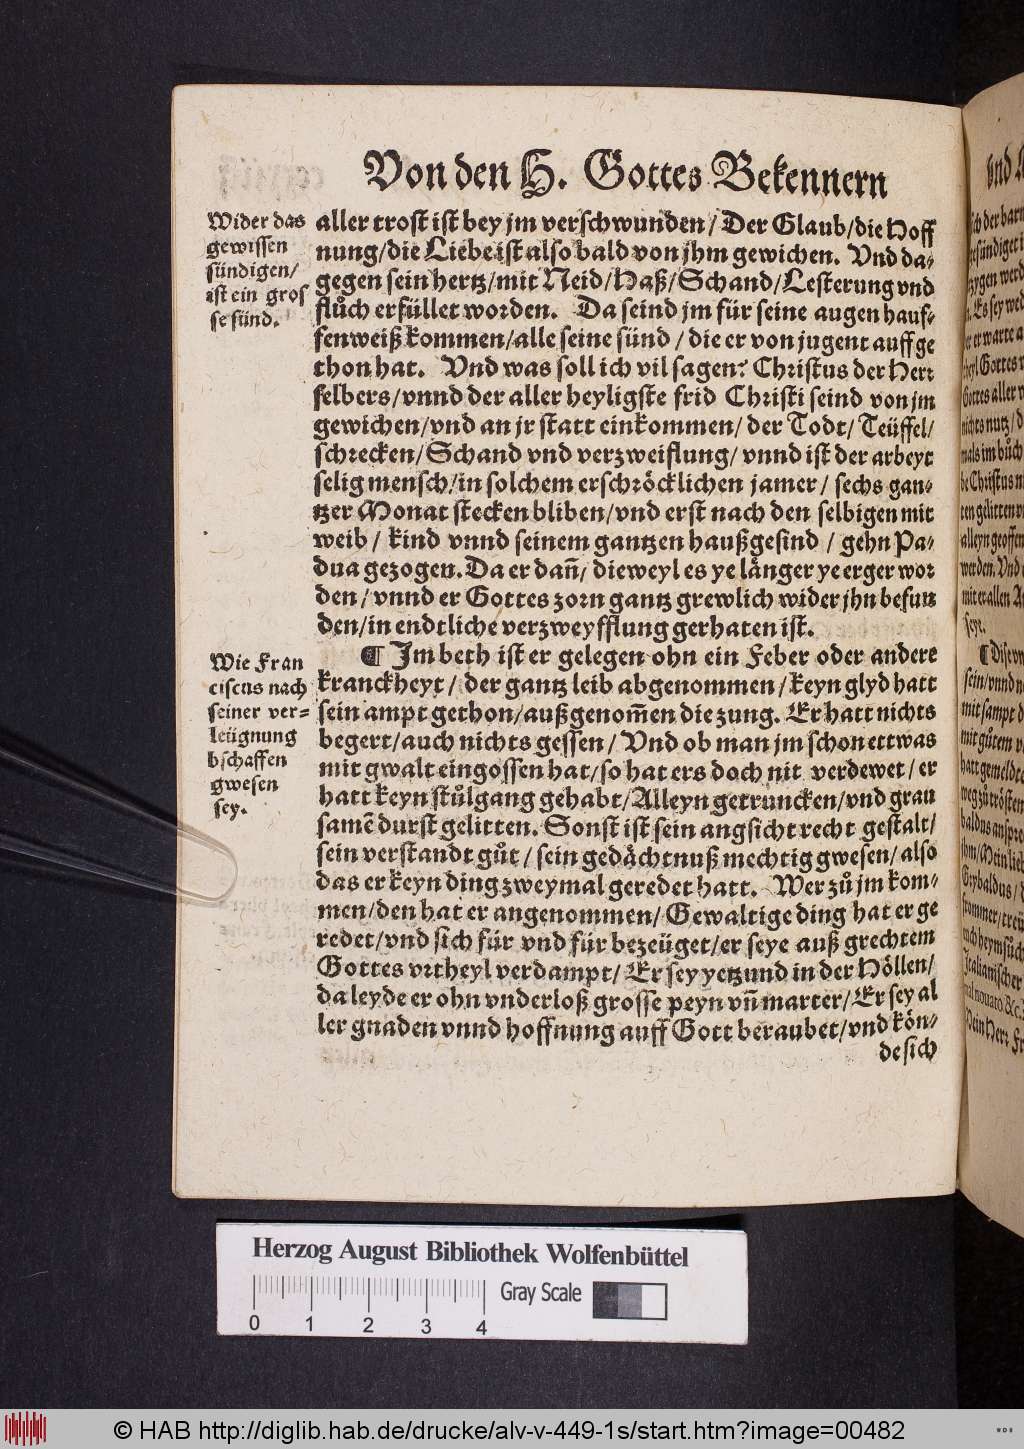 Von den H. Gottes Bekennern
Wider das
gewissen
sündigen/
ist ein gros
se sünd.
aller trost ist bey jm verschwunden / Der Glaub/die Hoff
nung/die Liebe ist also bald von jhm gewichen. Vnd da-
gegen sein hertz/mit Neid/Haß/Schand/Lesterung vnd
flůch erfüllet worden. Da seind jm für seine augen hauf-
fenweiß kommen/alle seine sünd / die er von jugent auff ge
thon hat. Vnd was soll ich vil sagen? Christus der Herr
selbers/vnnd der aller heyligste frid Christi seind von jm
gewichen/vnd an jr statt einkommen/ der Todt/ Teüffel/
schrecken/Schand vnd verzweiflung/ vnnd ist der arbeyt
selig mensch/in solchem erschröcklichen jamer / sechs gan-
tzer Monat stecken bliben/vnd erst nach den selbigen mit
weib / kind vnnd seinem gantzen haußgesind / gehn Pa-
dua gezogen. Da er dañ/ dieweyl es ye länger ye erger wor
den / vnnd er Gottes zorn gantz grewlich wider jhn befun
den/in endtliche verzweyfflung gerhaten ist.
Wie Fran
ciscus nach
seiner ver-
leügnung
bschaffen
gwesen
sey.
¶ Jm beth ist er gelegen ohn ein Feber oder andere
kranckheyt / der gantz leib abgenommen / keyn glyd hatt
sein ampt gethon/außgenom̃en die zung. Er hatt nichts
begert/auch nichts gessen / Vnd ob man jm schon ettwas
mit gwalt eingossen hat/so hat ers doch nit verdewet / er
hatt keyn stůlgang gehabt/Alleyn getruncken/vnd grau
samẽ durst gelitten. Sonst ist sein angsicht recht gestalt/
sein verstandt gůt / sein gedächtnuß mechtig gwesen/ also
das er keyn ding zweymal geredet hatt. Wer zů jm kom-
men/den hat er angenommen/ Gewaltige ding hat er ge
redet/vnd sich für vnd für bezeüget/er seye auß grechtem
Gottes vrtheyl verdampt/ Er sey yetzund in der Höllen/
da leyde er ohn vnderloß grosse peyn vñ marter/ Er sey al
ler gnaden vnnd hoffnung auff Gott beraubet/vnd kön-
de sich
Herzog August Bibliothek Wolfenbüttel
Gray Scale
0 1 2 3 4
© HAB http://diglib.hab.de/drucke/alv-v-449-1s/start.htm?image=00482